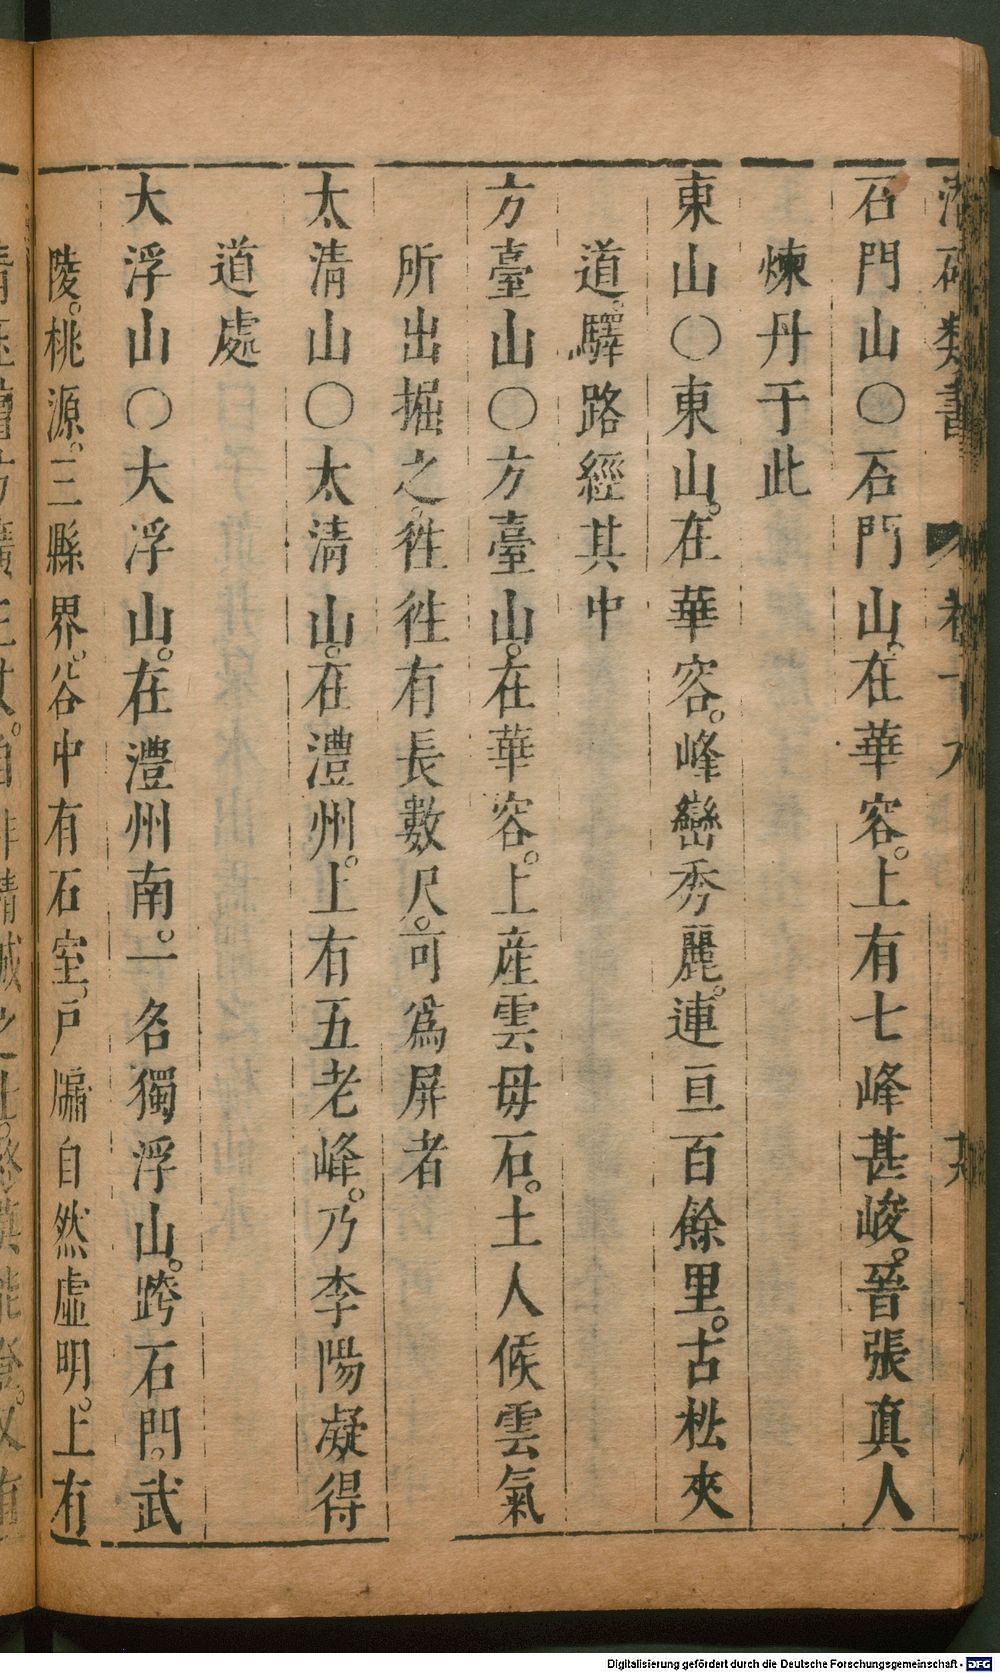 潛確類書 卷十九
石門山○石門山。在華容。上有七峰甚峻。晉張真人
煉丹于此
東山○東山。在華容。峰巒秀麗。連亘百餘里。古松夾
道。驛路經其中
方臺山○方臺山。在華容。上産雲母石。土人候雲氣
所出掘之。徃徃有長數尺。可爲屏者
太清山○太清山。在澧州。上有五老峰。乃李陽凝得
道處
大浮山○大浮山。在澧州南。一名獨浮山。跨石門。武
陵。桃源。三縣界。谷中有石室。戶牖自然虛明。上有
Digitalisierung gefördert durch die Deutsche Forschungsgemeinschaft - DFG